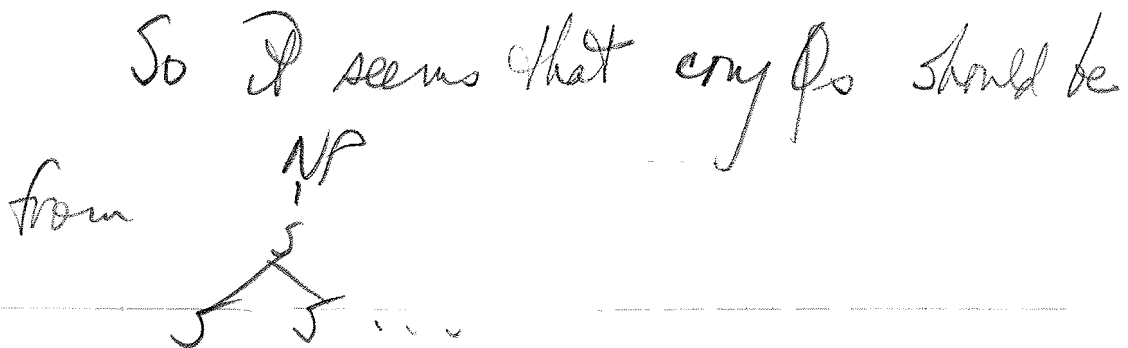 So it seems that conj Qs should be
NP
from
S
S S ...